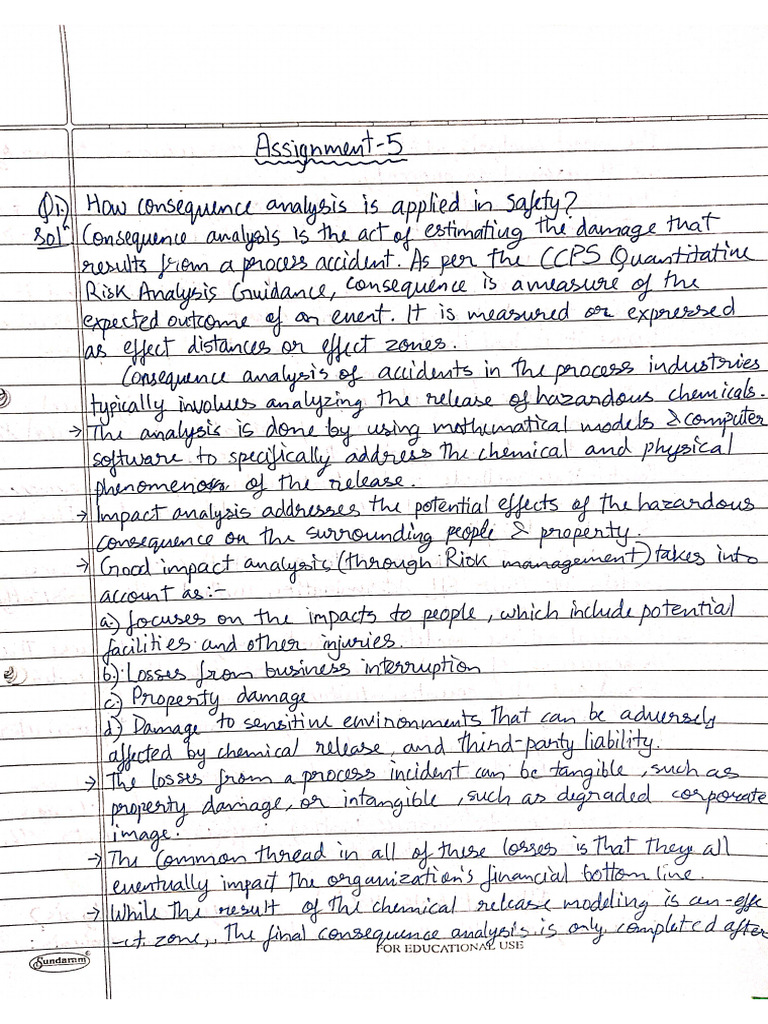 Assignment-5
Q1.) How consequence analysis is applied in safety?
Solⁿ Consequence analysis is the act of estimating the damage that
results from a process accident. As per the CCPS Quantitative
Risk Analysis Guidance, consequence is a measure of the
expected outcome of an event. It is measured or expressed
as effect distances or effect zones.
Consequence analysis of accidents in the process industries
typically involves analyzing the release of hazardous chemicals.
→ The analysis is done by using mathematical models & computer
software to specifically address the chemical and physical
phenomenon of the release.
→ Impact analysis addresses the potential effects of the hazardous
consequence on the surrounding people & property.
→ Good impact analysis (through Risk management) takes into
account as:-
a.) focuses on the impacts to people, which include potential
facilities and other injuries.
b.) Losses from business interruption
c.) Property damage
d.) Damage to sensitive environments that can be adversely
affected by chemical release, and third-party liability.
→ The losses from a process incident can be tangible, such as
property damage, or intangible, such as degraded corporate
image.
→ The common thread in all of these losses is that they all
eventually impact the organization's financial bottom line.
→ While the result of the chemical release modeling is an effe
-ct zone, The final consequence analysis is only completed after
FOR EDUCATIONAL USE
Sundaram